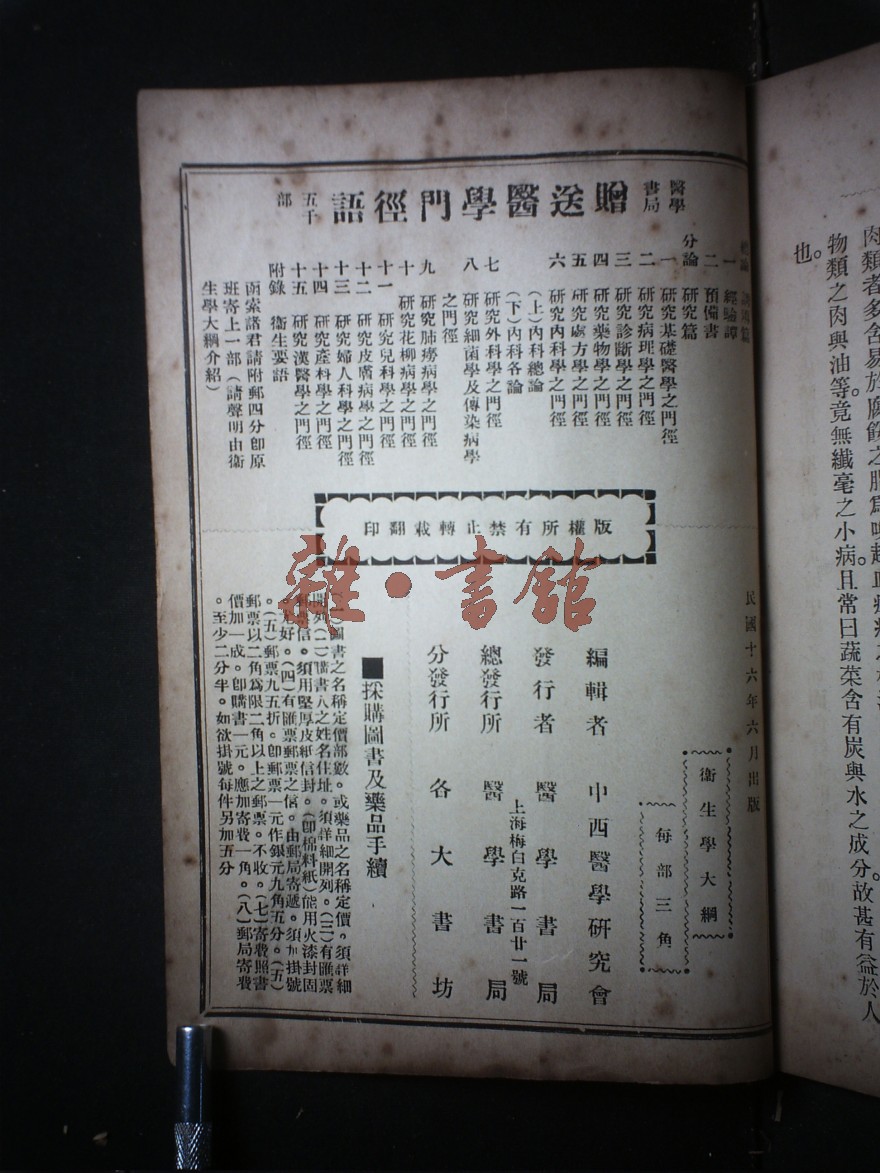 醫學書局
贈送醫學門徑語
五千部
總論
一 經驗譚
二 預備書
分論 研究篇
一 研究基礎醫學之門徑
二 研究病理學之門徑
三 研究診斷學之門徑
四 研究藥物學之門徑
五 研究處方學之門徑
六 研究內科學之門徑
(上)內科總論
(下)內科各論
七 研究外科學之門徑
八 研究細菌學及傳染病學
之門徑
九 研究肺癆病學之門徑
十 研究花柳病學之門徑
十一 研究兒科學之門徑
十二 研究皮膚病學之門徑
十三 研究婦人科學之門徑
十四 研究產科學之門徑
十五 研究漢醫學之門徑
附錄 衞生要語
函索諸君請附郵四分卽原
班寄上一部(請聲明由衞
生學大綱介紹)
版權所有禁止轉載翻印
民國十六年六月出版
衞生學大綱
每部三角
編輯者 中西醫學研究會
發行者 醫學書局
上海梅白克路一百廿一號
總發行所 醫學書局
分發行所 各大書坊
■採購圖書及藥品手續
圖書之名稱定價部數。或藥品之名稱定價。須詳細
開列。(二)購書人之姓名住址。須詳細開列。(三)有匯票
郵票信。須用堅厚皮紙信封。(卽棉料紙)能用火漆封固
尤好。(四)有匯票郵票之信。由郵局寄遞。須加掛號
。(五)郵票九五折。卽郵票一元作銀元九角五分。(五)
郵票以二角爲限二角以上之郵票。不收。(七)寄費照書
價加一成。卽購書一元。應加寄費一角。(八)郵局寄費
。至少二分半。如欲掛號每件另加五分
雜·書館
物類之肉與油等。竟無纖毫之小病。且常日蔬菜含有炭與水之成分。故甚有益於人
也。